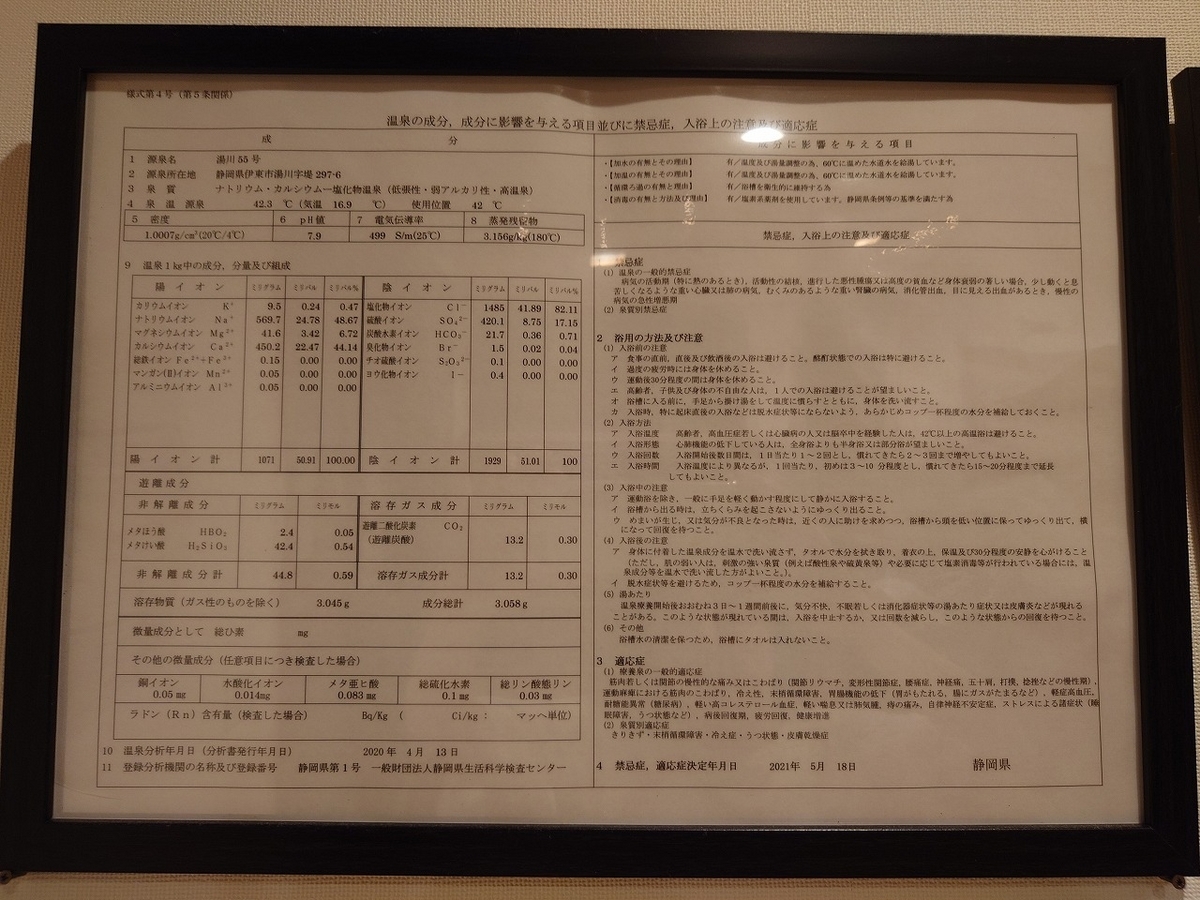 様式第4号（第5条関係）
温泉の成分，成分に影響を与える項目並びに禁忌症，入浴上の注意及び適応症
成 分
1 源泉名 湯川55号
2 源泉所在地 静岡県伊東市湯川字堤297-6
3 泉 質 ナトリウム・カルシウム－塩化物温泉（低張性・弱アルカリ性・高温泉）
4 泉 温 源泉 42.3 ℃（気温 16.9 ℃） 使用位置 42 ℃
5 密度 6 pH値 7 電気伝導率 8 蒸発残留物
1.0007g/cm³(20℃/4℃) 7.9 499 S/m(25℃) 3.156g/kg(180℃)
9 温泉1kg中の成分，分量及び組成
陽イオン ミリグラム ミリバル ミリバル% 陰イオン ミリグラム ミリバル ミリバル%
カリウムイオン K⁺ 9.5 0.24 0.47 塩化物イオン Cl⁻ 1485 41.89 82.11
ナトリウムイオン Na⁺ 569.7 24.78 48.67 硫酸イオン SO₄²⁻ 420.1 8.75 17.15
マグネシウムイオン Mg²⁺ 41.6 3.42 6.72 炭酸水素イオン HCO₃⁻ 21.7 0.36 0.71
カルシウムイオン Ca²⁺ 450.2 22.47 44.14 臭化物イオン Br⁻ 1.5 0.02 0.04
総鉄イオン Fe²⁺+Fe³⁺ 0.15 0.00 0.00 チオ硫酸イオン S₂O₃²⁻ 0.1 0.00 0.00
マンガン(Ⅱ)イオン Mn²⁺ 0.05 0.00 0.00 ヨウ化物イオン I⁻ 0.4 0.00 0.00
アルミニウムイオン Al³⁺ 0.05 0.00 0.00
陽イオン計 1071 50.91 100.00 陰イオン計 1929 51.01 100
遊離成分
非解離成分 ミリグラム ミリモル 溶存ガス成分 ミリグラム ミリモル
メタほう酸 HBO₂ 2.4 0.05 遊離二酸化炭素 CO₂ 13.2 0.30
メタけい酸 H₂SiO₃ 42.4 0.54 （遊離炭酸）
非解離成分計 44.8 0.59 溶存ガス成分計 13.2 0.30
溶存物質（ガス性のものを除く） 3.045g 成分総計 3.058g
微量成分として 総ひ素 mg
その他の微量成分（任意項目につき検査した場合）
銅イオン 水酸化イオン メタ亜ヒ酸 総硫化水素 総リン酸態リン
0.05 mg 0.014mg 0.083 mg 0.1 mg 0.03 mg
ラドン（Rn）含有量（検査した場合） Bq/Kg （ Ci/kg： マッヘ単位）
10 温泉分析年月日（分析書発行年月日） 2020年 4月 13日
11 登録分析機関の名称及び登録番号 静岡県第1号 一般財団法人静岡県生活科学検査センター
成分に影響を与える項目
・【加水の有無とその理由】 有／温度及び湯量調整の為、60℃に温めた水道水を給湯しています。
・【加温の有無とその理由】 有／温度及び湯量調整の為、60℃に温めた水道水を給湯しています。
・【循環ろ過の有無と理由】 有／浴槽を衛生的に維持する為
・【消毒の有無と方法及び理由】 有／塩素系薬剤を使用しています。静岡県条例等の基準を満たす為
禁忌症，入浴上の注意及び適応症
禁忌症
(1) 温泉の一般的禁忌症
病気の活動期（特に熱のあるとき），活動性の結核，進行した悪性腫瘍又は高度の貧血など身体衰弱の著しい場合，少し動くと息
苦しくなるような重い心臓又は肺の病気，むくみのあるような重い腎臓の病気，消化管出血，目に見える出血があるとき，慢性の
病気の急性増悪期
(2) 泉質別禁忌症
2 浴用の方法及び注意
(1) 入浴前の注意
ア 食事の直前，直後及び飲酒後の入浴は避けること。酩酊状態での入浴は特に避けること。
イ 過度の疲労時には身体を休めること。
ウ 運動後30分程度の間は身体を休めること。
エ 高齢者，子供及び身体の不自由な人は，1人での入浴は避けることが望ましいこと。
オ 浴槽に入る前に，手足から掛け湯をして温度に慣らすとともに，身体を洗い流すこと。
カ 入浴時，特に起床直後の入浴などは脱水症状等にならないよう，あらかじめコップ一杯程度の水分を補給しておくこと。
(2) 入浴方法
ア 入浴温度 高齢者，高血圧症若しくは心臓病の人又は脳卒中を経験した人は，42℃以上の高温浴は避けること。
イ 入浴形態 心肺機能の低下している人は，全身浴よりも半身浴又は部分浴が望ましいこと。
ウ 入浴回数 入浴開始後数日間は，1日当たり1～2回とし，慣れてきたら2～3回まで増やしてもよいこと。
エ 入浴時間 入浴温度により異なるが，1回当たり，初めは3～10 分程度とし，慣れてきたら15～20分程度まで延長
してもよいこと。
(3) 入浴中の注意
ア 運動浴を除き，一般に手足を軽く動かす程度にして静かに入浴すること。
イ 浴槽から出る時は，立ちくらみを起こさないようにゆっくり出ること。
ウ めまいが生じ，又は気分が不良となった時は，近くの人に助けを求めつつ，浴槽から頭を低い位置に保ってゆっくり出て，横
になって回復を待つこと。
(4) 入浴後の注意
ア 身体に付着した温泉成分を温水で洗い流さず，タオルで水分を拭き取り，着衣の上，保温及び30分程度の安静を心がけること
（ただし，肌の弱い人は，刺激の強い泉質（例えば酸性泉や硫黄泉等）や必要に応じて塩素消毒等が行われている場合には，温
泉成分等を温水で洗い流した方がよいこと。）。
イ 脱水症状等を避けるため，コップ一杯程度の水分を補給すること。
(5) 湯あたり
温泉療養開始後おおむね3日～1週間前後に，気分不快，不眠若しくは消化器症状等の湯あたり症状又は皮膚炎などが現れる
ことがある。このような状態が現れている間は，入浴を中止するか，又は回数を減らし，このような状態からの回復を待つこと。
(6) その他
浴槽水の清潔を保つため，浴槽にタオルは入れないこと。
3 適応症
(1) 療養泉の一般的適応症
筋肉若しくは関節の慢性的な痛み又はこわばり（関節リウマチ，変形性関節症，腰痛症，神経痛，五十肩，打撲，捻挫などの慢性期），
運動麻痺における筋肉のこわばり，冷え性，末梢循環障害，胃腸機能の低下（胃がもたれる，腸にガスがたまるなど），軽症高血圧，
耐糖能異常（糖尿病），軽い高コレステロール血症，軽い喘息又は肺気腫，痔の痛み，自律神経不安定症，ストレスによる諸症状（睡
眠障害，うつ状態など），病後回復期，疲労回復，健康増進
(2) 泉質別適応症
きりきず・末梢循環障害・冷え症・うつ状態・皮膚乾燥症
4 禁忌症，適応症決定年月日 2021年 5月 18日 静岡県